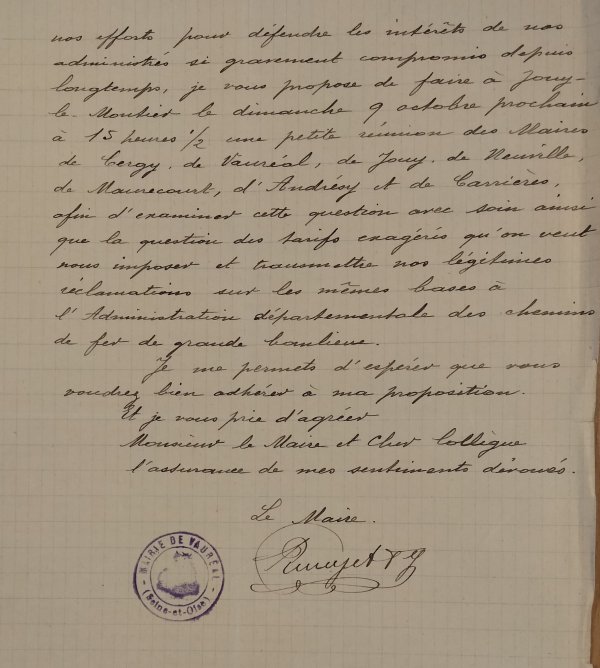 nos efforts pour défendre les intérêts de nos
administrés si gravement compromis depuis
longtemps, je vous propose de faire à Jouy-
le-Moutier le dimanche 9 octobre prochain
à 15 heures 1/2 une petite réunion des Maires
de Cergy, de Vauréal, de Jouy, de Neuville,
de Maurecourt, d'Andrésy et de Carrières,
afin d'examiner cette question avec soin ainsi
que la question des tarifs exagérés qu'on veut
nous imposer et transmettre nos légitimes
réclamations sur les mêmes bases à
l'Administration départementale des chemins
de fer de grande banlieue.
Je me permets d'espérer que vous
voudrez bien adhérer à ma proposition.
Et je vous prie d'agréer
Monsieur le Maire et Cher Collègue
l'assurance de mes sentiments dévoués.
Le Maire.
MAIRIE DE VAURÉAL
(Seine-et-Oise)